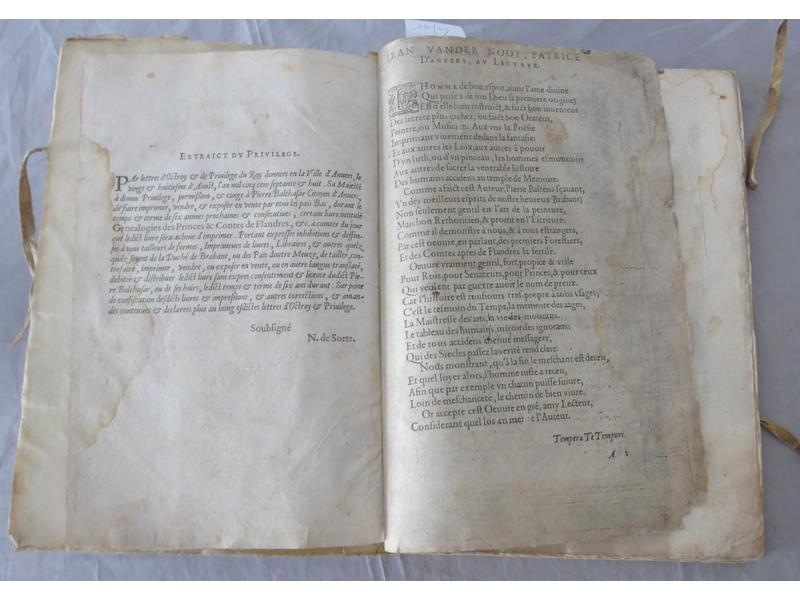 EXTRAICT DV PRIVILEGE.
PAr lettres d'Octroy & de Privilege du Roy donnees en la Ville d'Anuers, le
vingt & huitiesme d'Aoust, l'an mil cinq cens septante & huit. Sa Maiesté
à donne Privilege, permission, & congé à Pierre Balthasar Citoyen d'Anuers,
de faire imprimer, vendre, & exposer en vente par tous les païs Bas, durant le
temps & terme de six annees prochaines & consecutiues, certain liure intitulé
Genealogies des Princes & Contes de Flandres, &c. à comter du jour
que ledict liure sera acheué d'imprimer. Portant expresses inhibitions & deffen-
ses à tous tailleurs de formes, Imprimeurs de liures, Libraires, & autres quelz-
quelz soyent de la Duché de Brabant, ou des Païs doutre Meuze, de tailler, con-
trefaire, imprimer, vendre, ou exposer en vente, ou en autre langue translaté,
debiter & distribuer ledict liure sans expres consentement & licence dudict Pie-
re Balthasar, ou de ses hoirs, ledict temps & terme de six ans durant: Sur peine
de confiscation desdicts liures & impressions, & autres corrections, & aman-
des contenues & declarees plus au long esdictes lettres d'Octroy & Privilege.
Soubsigné
N. de Soete.
IEAN VANDER NOOT, PATRICE
D'ANVERS, AV LECTEVR.
HOMME de bon esprit, aiant l'ame divine
Qui prise a de son Dieu sa premiere origine,
Est d'elle bien instruict, & faict bon inuenteur
Des secretz plus cachez, ou faict bon Orateur,
Peintre, ou Musicien: Aux vns la Poësie
Imprimant viuement dedans la fantasie:
Et aux autres les Loix, aux autres à pouoir
D'vn luth, ou d'vn pinceau, les hommes esmouuoir
Aux autres de sacrer la venerable histoire
Des humains accidens au temple de Memoire.
Comme a faict cest Auteur, Pierre Baltens sçauant,
Vn des meilleurs esprits de nostre heureux Brabant:
Non seulement gentil en l'art de la peinture,
Mais bon Rethoricien, & promt en l'Escriture:
Comme il demonstre à nous, & à tous estrangers,
Par cest oeuure, en parlant, des premiers Forestiers,
Et des Comtes apres de Flandres la fertile.
Oeuure vraiment gentil, fort propice & vtile
Pour Rois, pour Senateurs, pour Princes, & pour ceux
Qui veulent par guerre auoir le nom de preux.
Car l'histoire est tousiours tres propre à tous vsages,
C'est le tesmoin du Temps, la monitre des aages,
La Maistresse des arts, la vie des mourans,
Le tableau des humains, miroir des ignorans:
Et de tous accidens chenue messagere,
Qui des Siecles passez la verité rend clere:
Nous monstrant, qu'à la fin le meschant est deceu,
Et quel loyer alors, l'homme iuste a receu,
Afin que par exemple vn chacun puisse suiure,
Loin de meschanceté, le chemin de bien viure.
Or accepte cest Oeuure en gré, amy Lecteur,
Considerant quel los en merite l'Auteur.
Tempera Te Tempori.
A 2